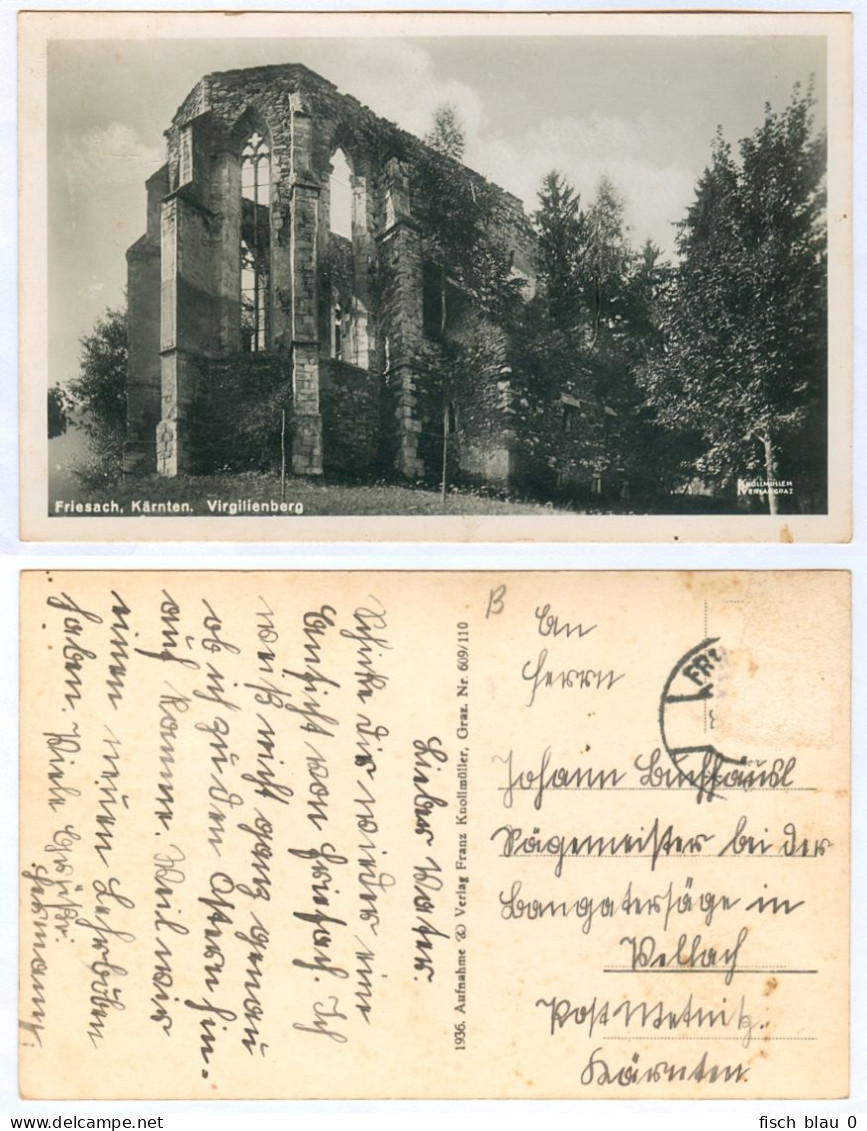 Friesach, Kärnten. Virgilienberg
KNOLLMÜLLER
VERLAG GRAZ
Lieber Vater.
Schicke dir wieder eine
Ansicht von Friesach. Ich
weiß nicht ganz genau
ob ich zu den Ostern hin-
auf komme. Weil wir
einen neuen Lehrbuben
haben. Viele Grüße.
Hermann.
1936. Aufnahme & Verlag Franz Knollmüller, Graz. Nr. 609/110
B
An
Herrn
Johann Buchhäusl
Sägemeister bei der
Bangatersäge in
Vellach
Post Metnitz.
Kärnten.
FR
fisch blau 0